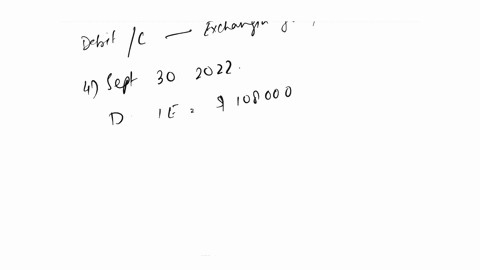 Debit /C — Exchanging
4) Sept 30 2022.
D IE = $ 108000